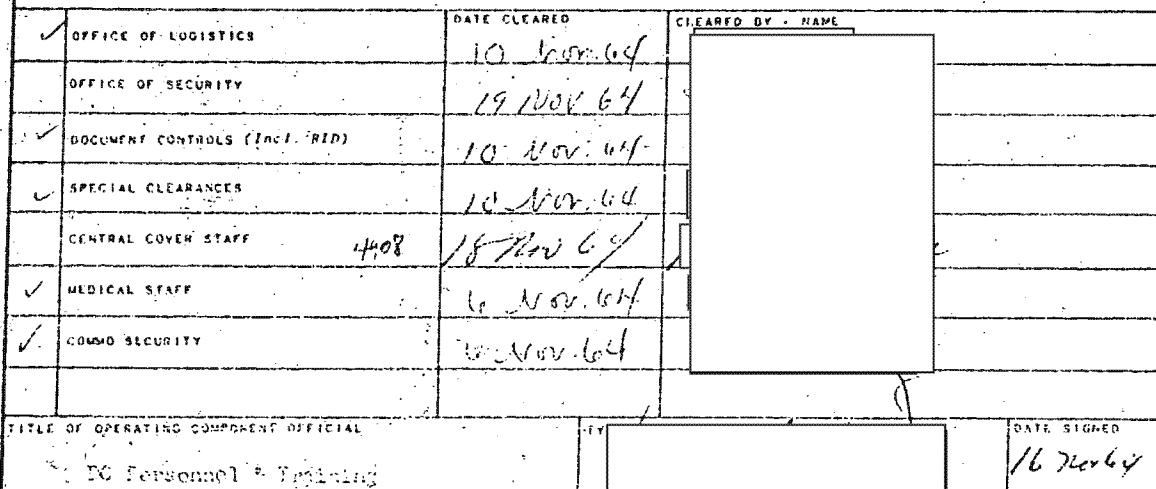 DATE CLEARED CLEARED BY - NAME
✓ OFFICE OF LOGISTICS 10 Nov. 64
OFFICE OF SECURITY 19 NOV 64
✓ DOCUMENT CONTROLS (Incl. RID) 10 Nov. 64
✓ SPECIAL CLEARANCES 10 Nov. 64
CENTRAL COVER STAFF 4408 18 Nov 64
✓ MEDICAL STAFF 6 Nov. 64
✓ COMMO SECURITY 6 Nov. 64
TITLE OF OPERATING COMPONENT OFFICIAL DATE SIGNED
Personnel & Training 16 Nov 64